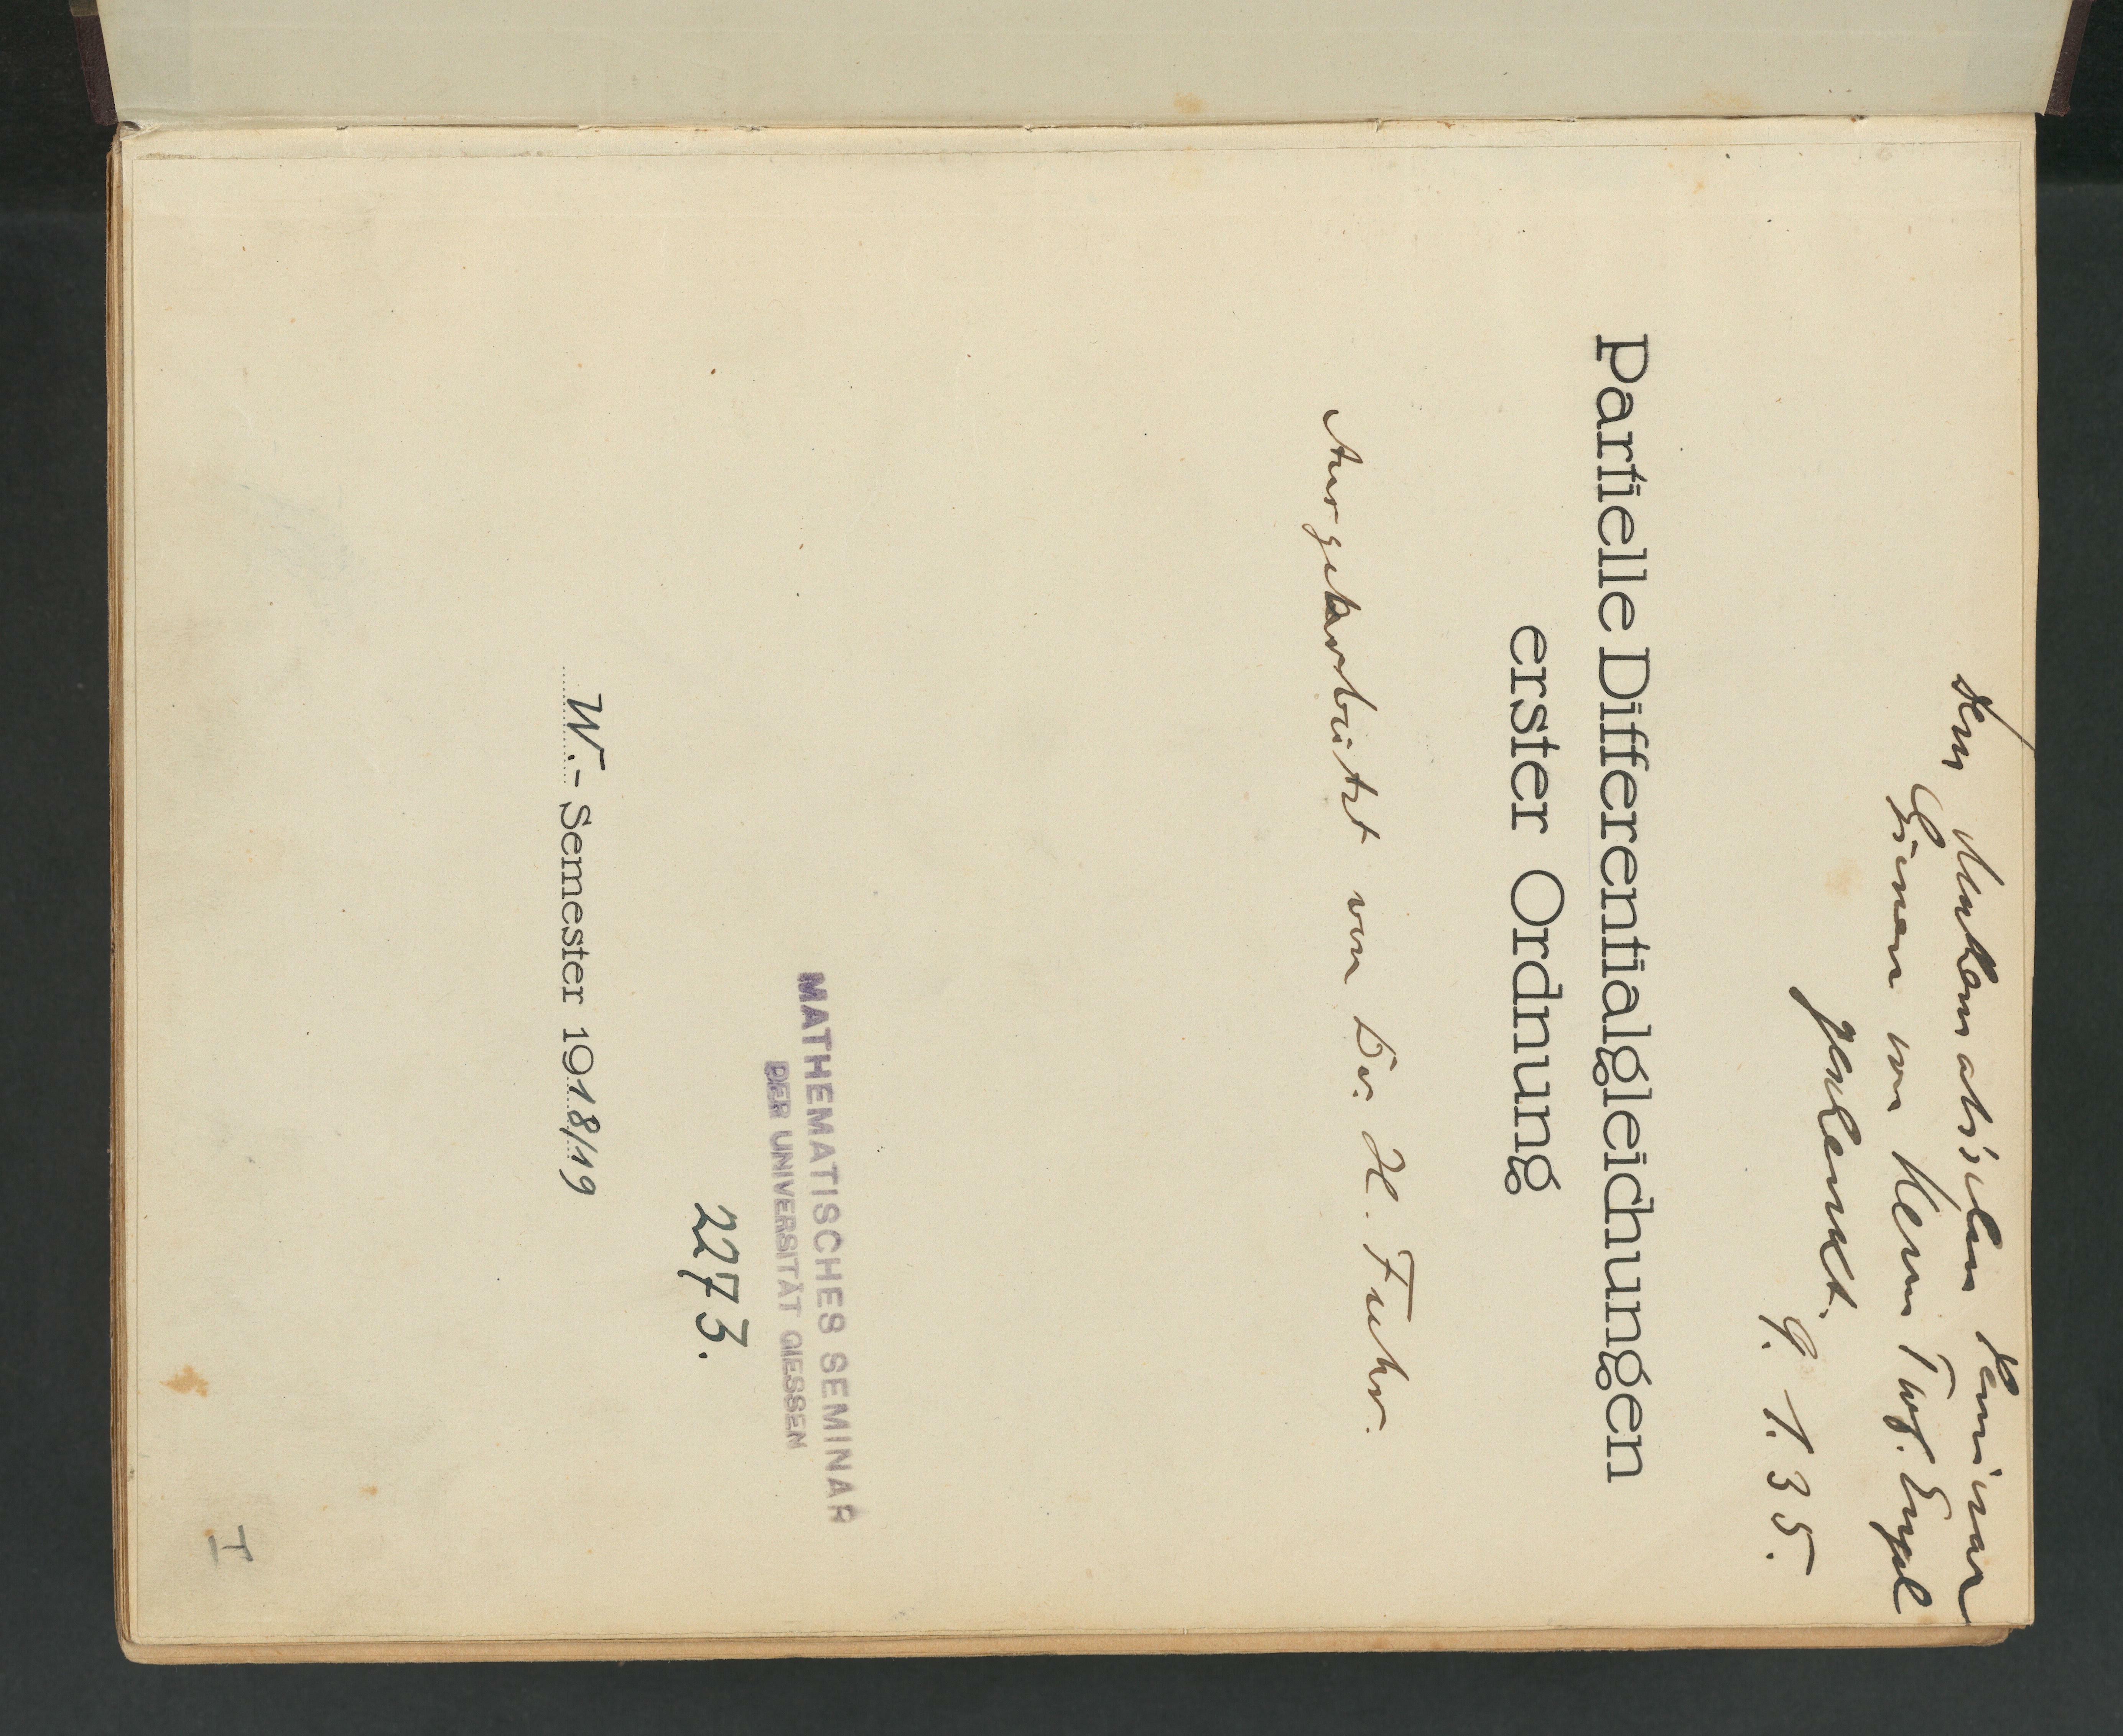 Dem Mathematischen Seminar
Giessen von Herrn Prof. Engel
geschenkt.
9. 1. 35.
Partielle Differentialgleichungen
erster Ordnung
Ausgearbeitet von Dr. H. Fuhr.
MATHEMATISCHES SEMINAR
DER UNIVERSITÄT GIESSEN
2273.
W.- Semester 1918/19
I